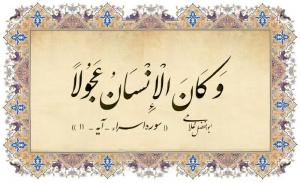 وَ كَانَ الْإِنْسَانُ عَجُولًا
(( سوره اسراء - آیه - ۱۱ ))